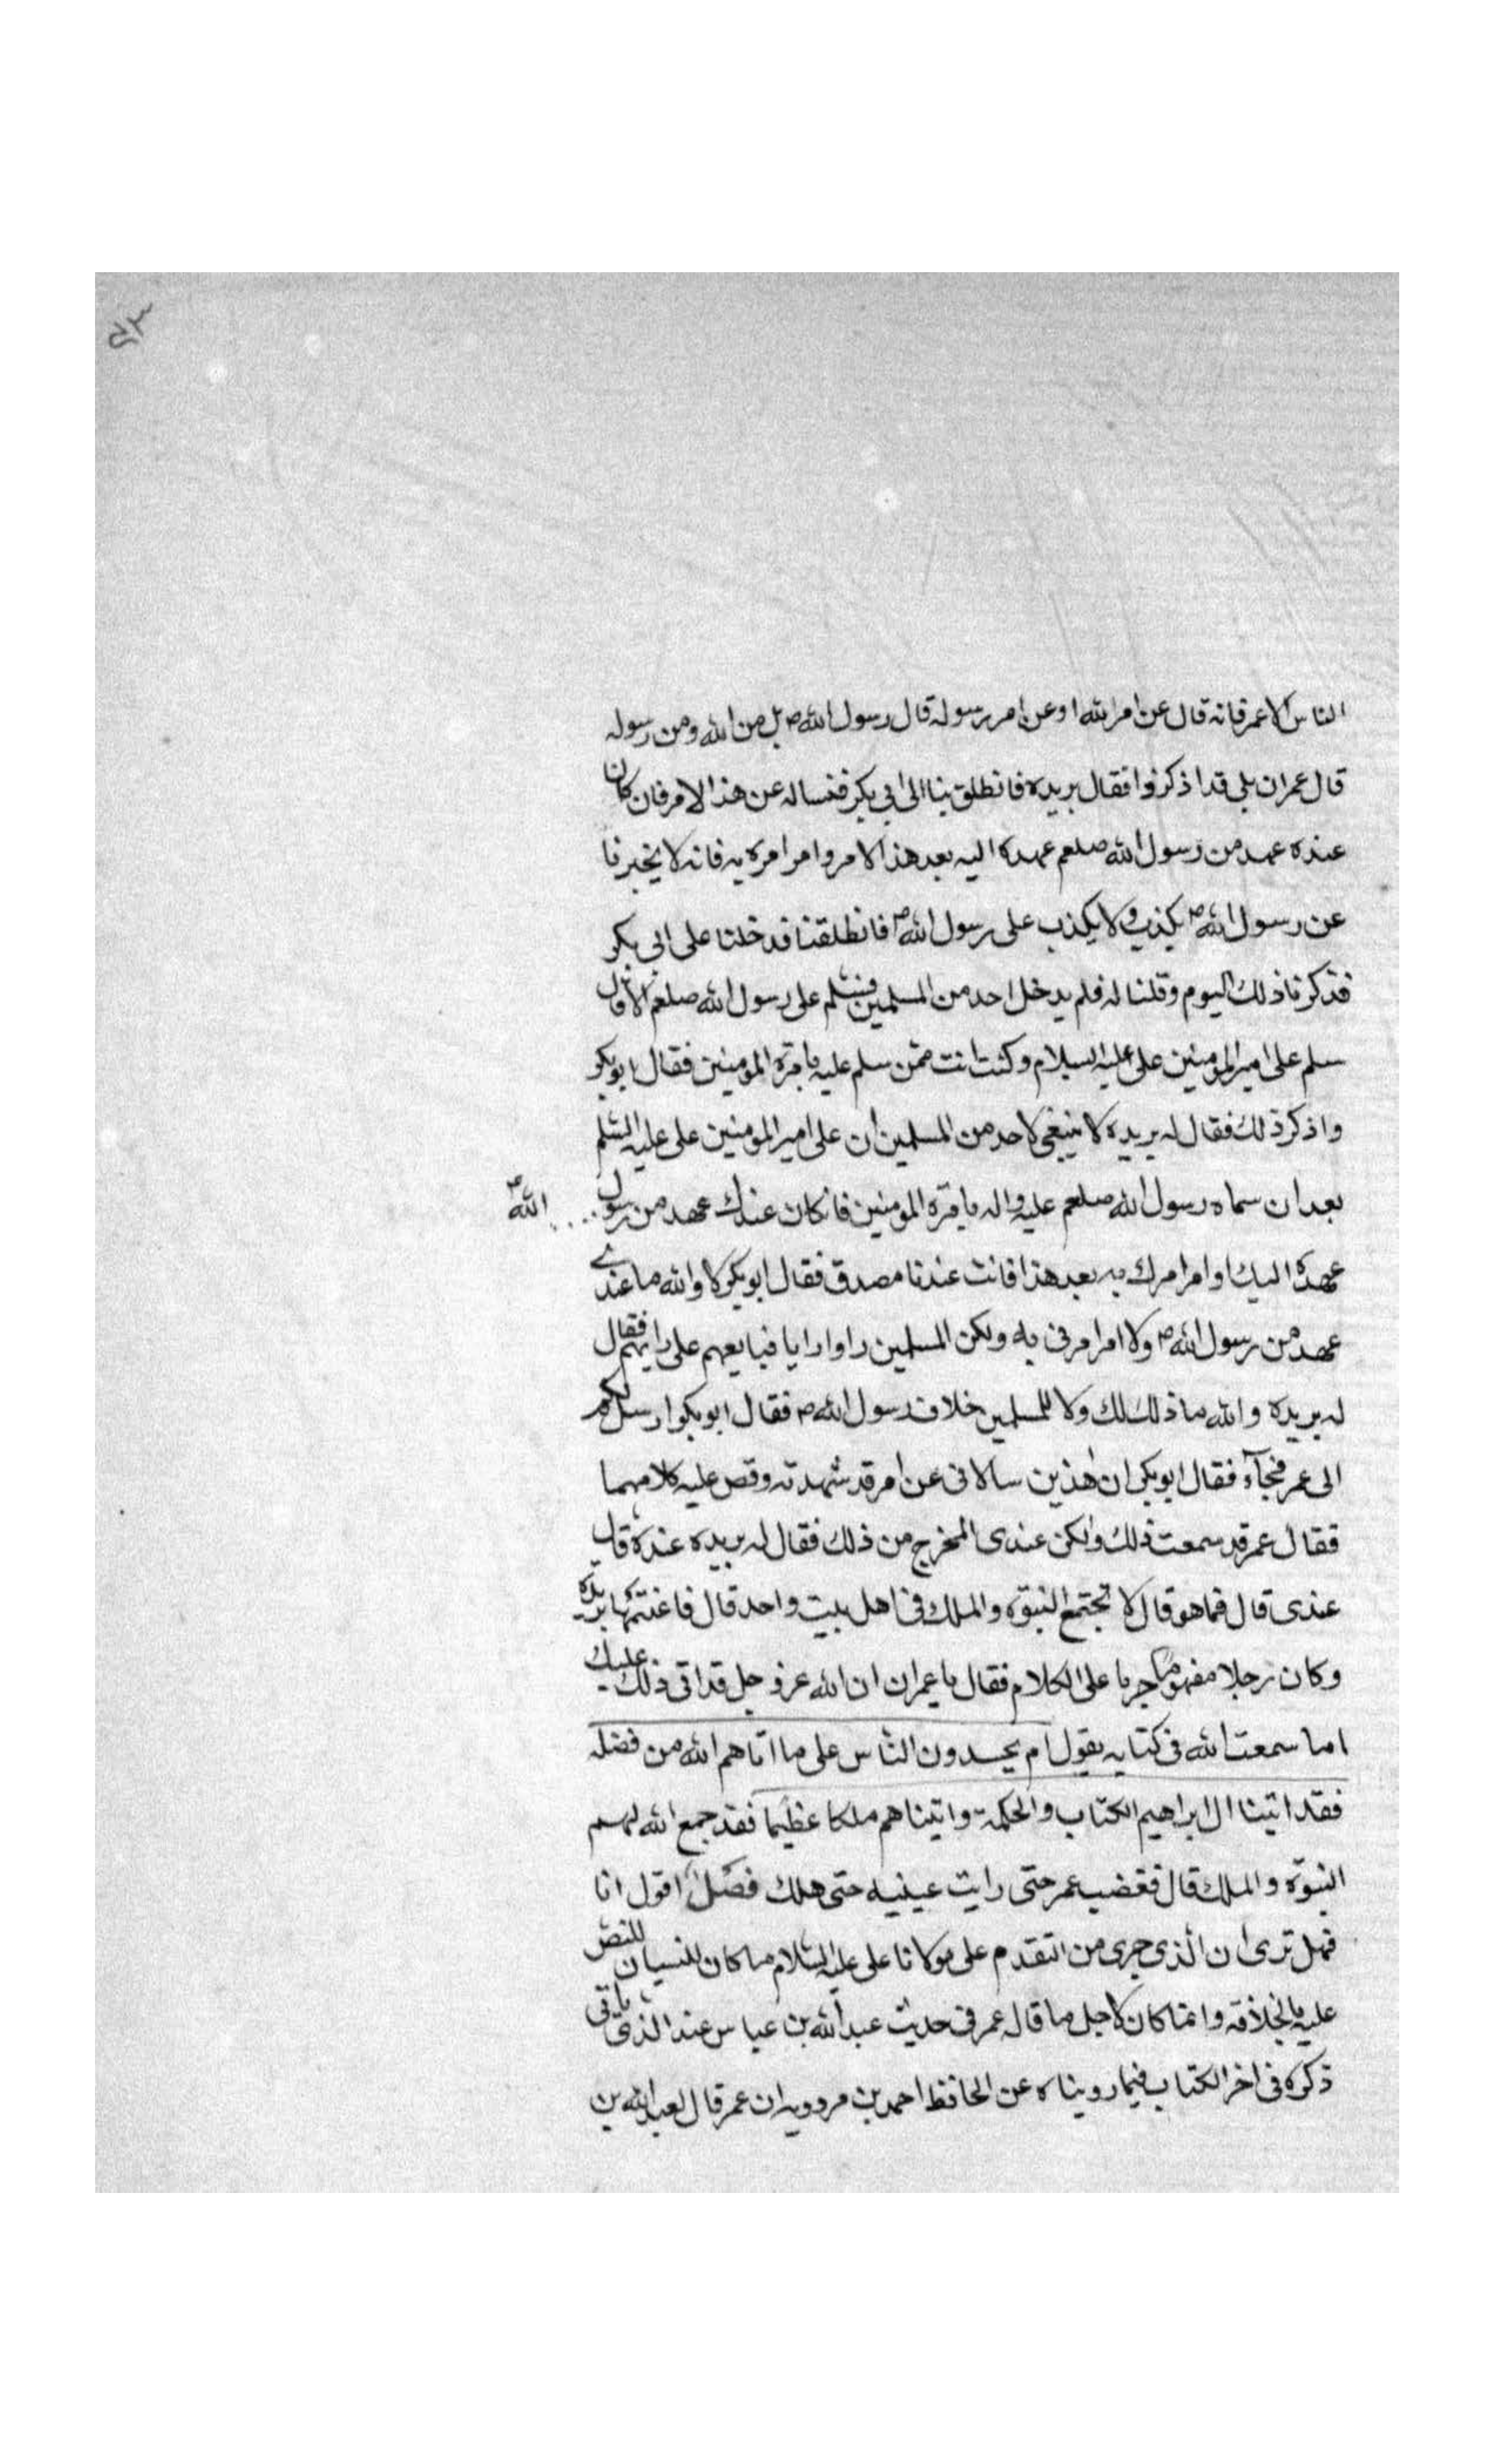 ٥٣
الناس الا عمر فانه قال عن امر الله او عن امر رسوله قال رسول الله ص بل من الله ومن رسوله
قال عمران بلى قد اذكر ذا فقال بريده فانطلق بنا الى ابي بكر فنساله عن هذا الامر فان كان
عنده عهد من رسول الله صلعم عهده اليه بعد هذا الامر وامر امره به فانه لا يخبرنا
عن رسول الله ص يكذب ولا يكذب على رسول الله ص فانطلقنا فدخلنا على ابي بكر
فذكرنا ذلك اليوم وقلنا له فلم يدخل احد من المسلمين فسلم على رسول الله صلعم الا قال
سلم على امير المومنين على عليه السلام وكنت انت ممن سلم عليه بامرة المومنين فقال ابو بكر
واذكر ذلك فقال له بريده لا ينبغي لاحد من المسلمين ان على امير المومنين على عليه السلم
بعد ان سماه رسول الله صلعم عليه واله بامرة المومنين فان كان عندك عهد من رسول الله ص
عهده اليك او امر امرك به بعد هذا فانت عندنا مصدق فقال ابو بكر لا والله ما عندي
عهد من رسول الله ص ولا امر امرني به ولكن المسلمين راوا رايا فبايعهم على رايهم فقال
له بريده والله ما ذلك لك ولا للمسلمين خلاف رسول الله ص فقال ابو بكر ارسل لكم
الى عمر فجآء فقال ابو بكر ان هذين سالاني عن امر قد شهدته وقص عليه كلامهما
فقال عمر قد سمعت ذلك ولكن عندى المخرج من ذلك فقال له بريده عندك قال
عندى قال فما هو قال لا تجتمع النبوة والملك في اهل بيت واحد قال فاغتنمها بريده
وكان رجلا مفهوما جريا على الكلام فقال يا عمران ان الله عز وجل قد اتى ذلك عليك
اما سمعت الله في كتابه يقول ام يحسدون الناس على ما اتاهم الله من فضله
فقد اتينا ال ابراهيم الكتاب والحكمة واتيناهم ملكا عظيما فقد جمع الله لهم
النبوّة والملك قال فغضب عمر حتى رايت عينيه حتى هلك فصل اقول انا
فهل ترى ان الذي جرى من التقدم على مولانا على عليه السلام ما كان لنسيان للنص
عليه بالخلافة وانما كان لاجل ما قال عمر في حديث عبد الله بن عباس عند الذي ياتي
ذكره في اخر الكتاب فيما رويناه عن الحافظ احمد بن مردويه ان عمر قال لعبد الله بن